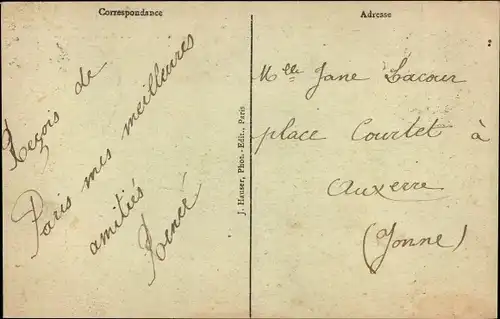 Correspondance
Reçois de
Paris mes meilleures
amitiés
Renée
J. Hauser, Phot.-Edit., Paris
Adresse
Mlle Jane Lacour
place Courtet à
Auxerre
(Yonne)